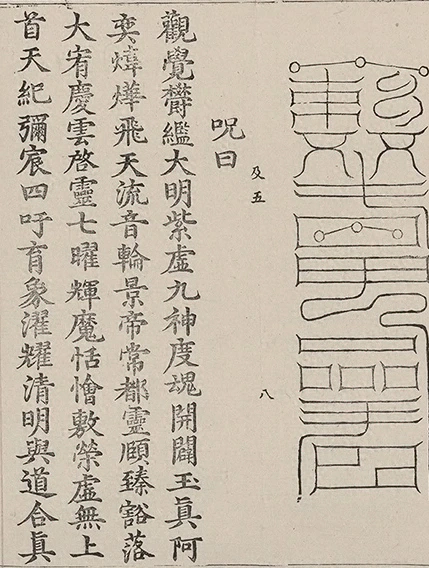 及五
八
呪曰
觀覺欝鑑大明紫虛九神度魂開闢玉眞阿
奕煒燁飛天流音輪景帝常都靈頤臻豁落
大宥慶雲啓靈七曜輝魔恬憺敷榮虛無上
首天紀彌宸四吁育象濯耀清明與道合眞